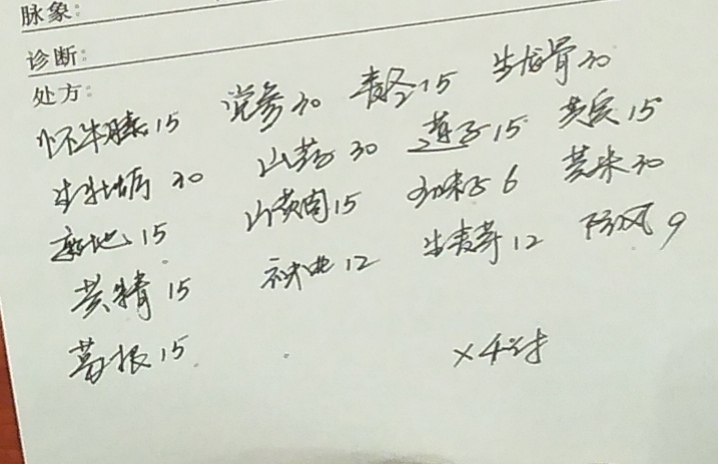 脉象:
诊断:
处方:
怀牛膝15 党参30 15 生龙骨30
生牡蛎30 山药30 莲子15 芡实15
熟地15 山萸肉15 五味子6 30
黄精15 神曲12 生麦芽12 防风9
葛根15 ×4付